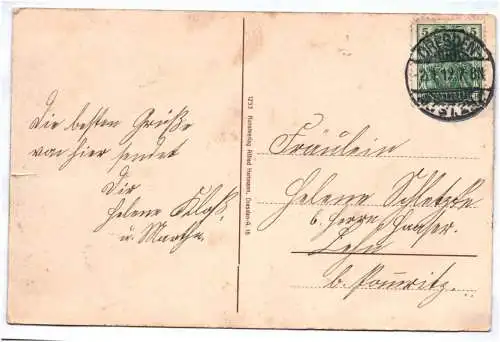 Die besten Grüße
von hier sendet
Dir
Helene Kloß
u. Martha.
1253 Kunstverlag Alfred Hartmann, Dresden-A. 16
5 5
DRESDEN
12. 7-8N.
Fräulein
Helene Schletzke
b. Herrn Haaser.
Lehn
b. Pommritz.